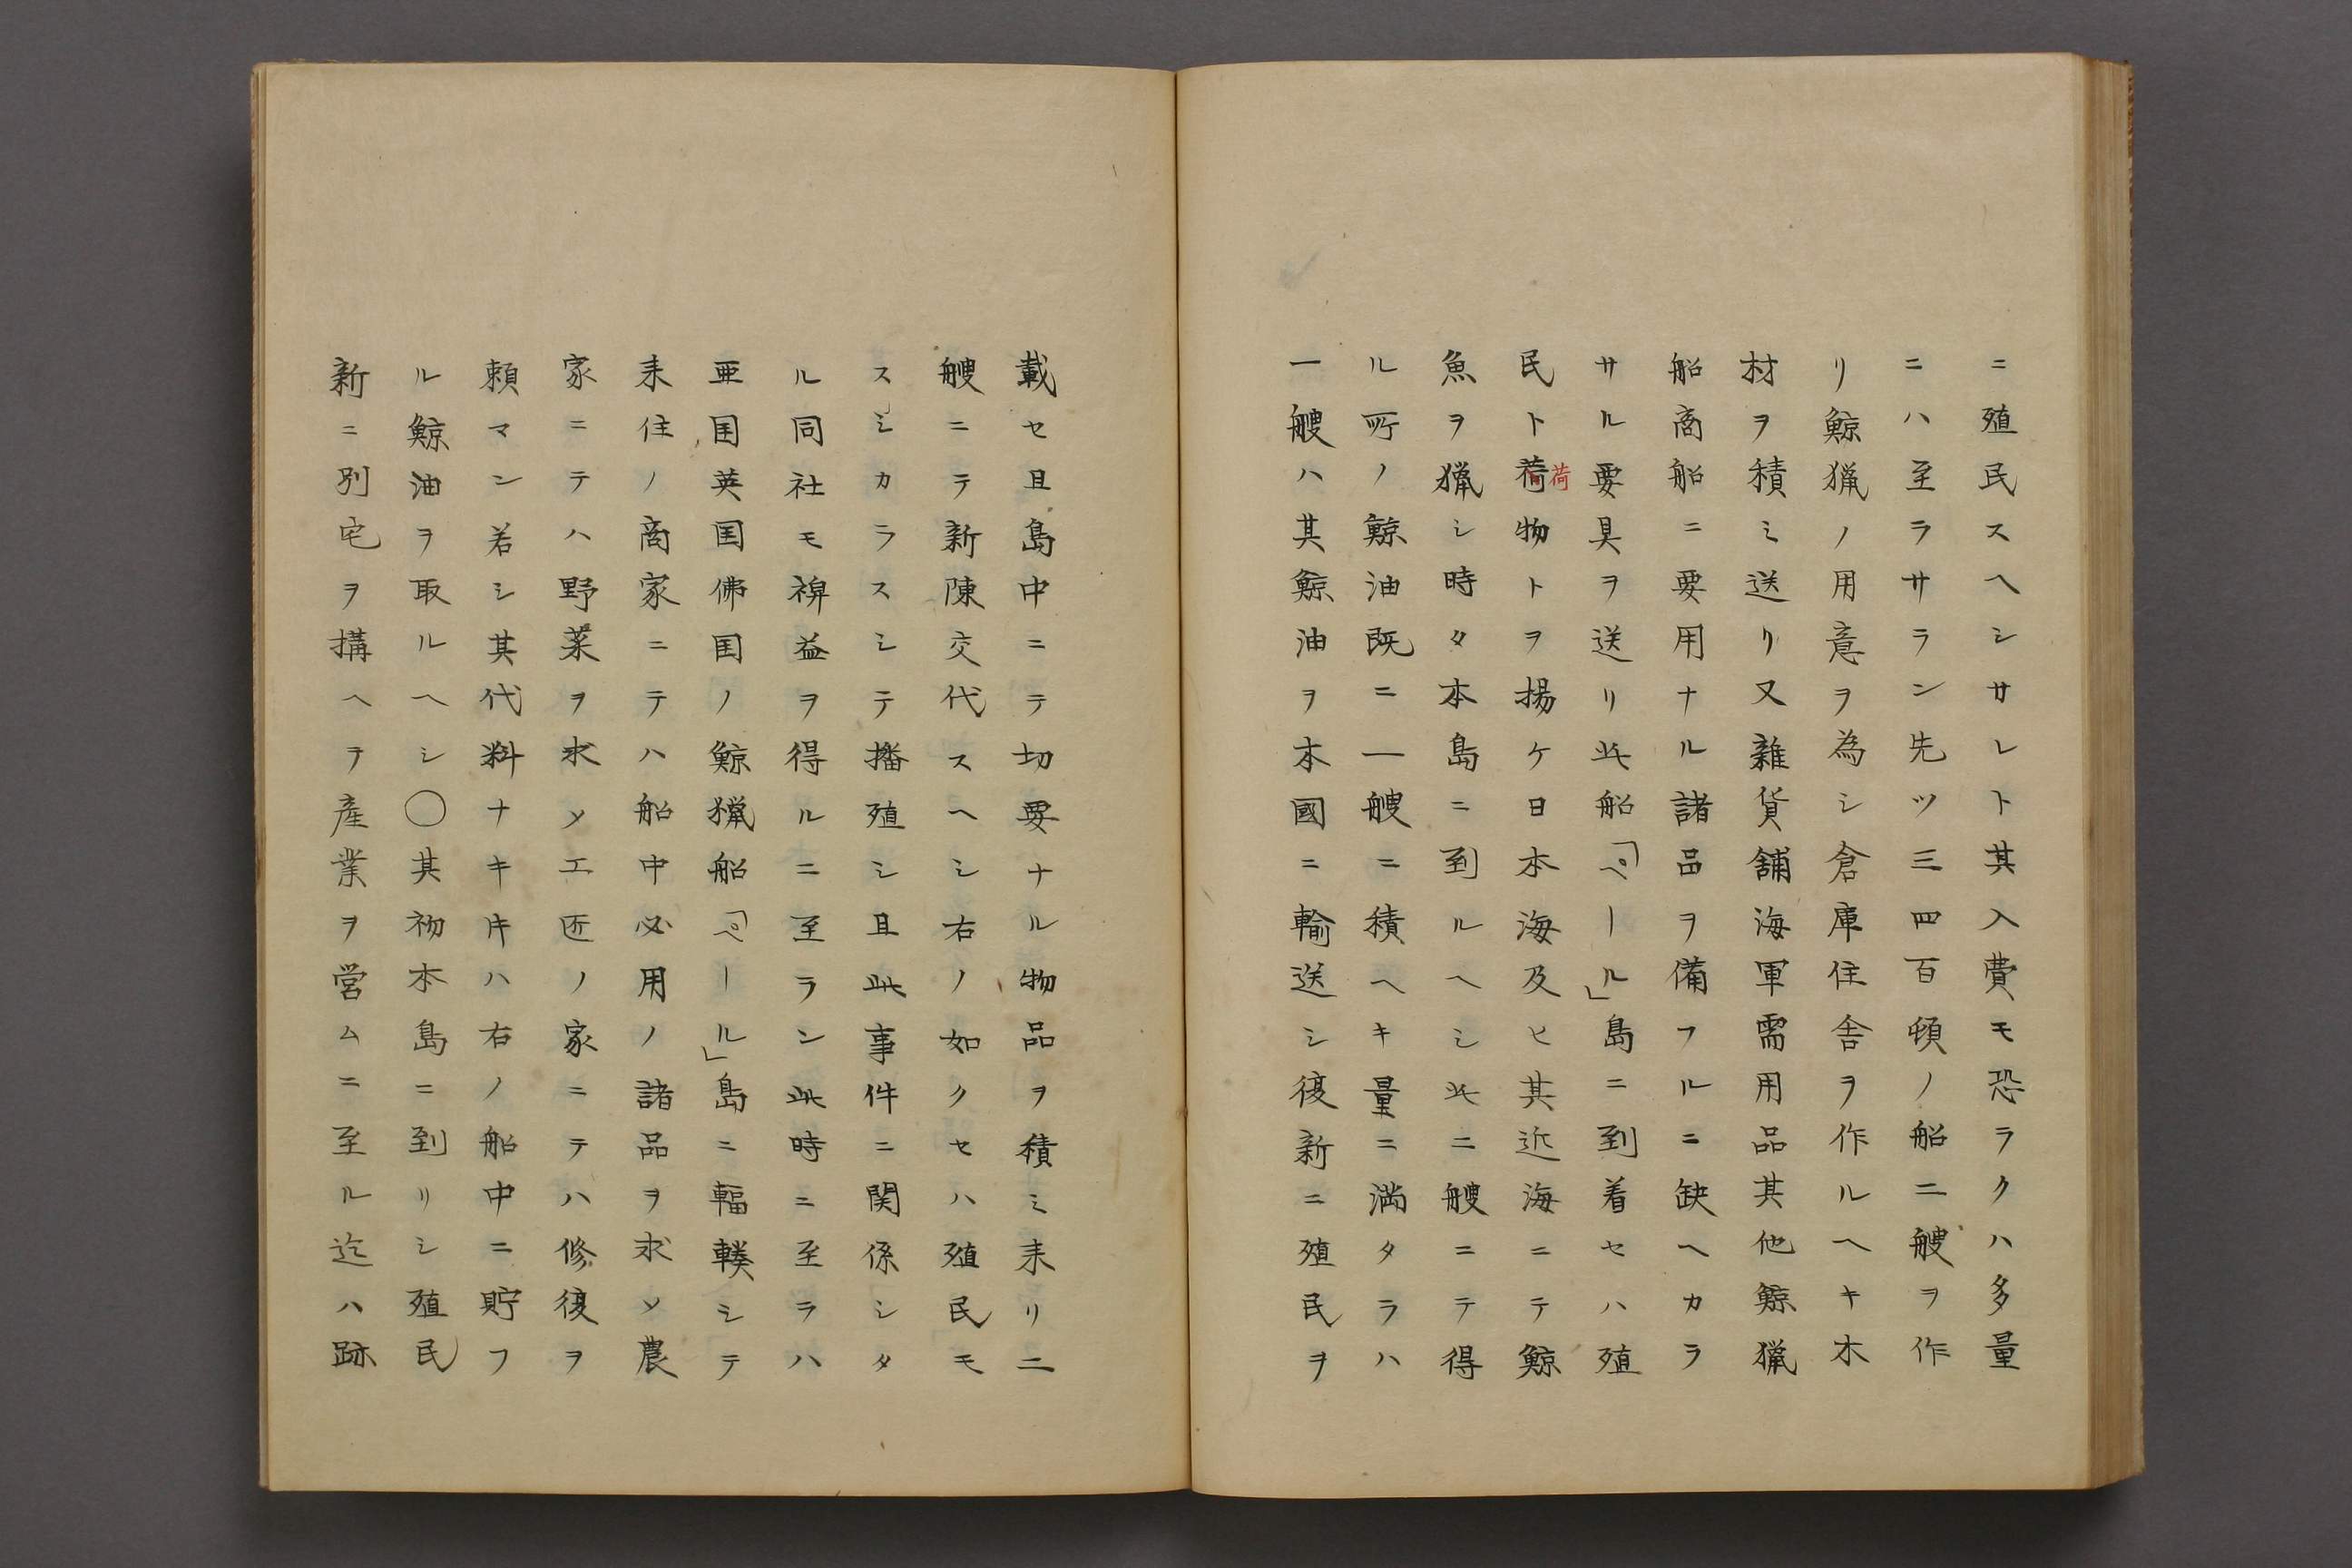 ニ殖民スヘシサレト其入費モ恐ラクハ多量
ニハ至ラサラン先ツ三四百頓ノ船二艘ヲ作
リ鯨猟ノ用意ヲ為シ倉庫住舎ヲ作ルヘキ木
材ヲ積ミ送リ又雑貨舗海軍需用品其他鯨猟
船商船ニ要用ナル諸品ヲ備フルニ缺ヘカラ
サル要具ヲ送リ此船「ペール」島ニ到着セハ殖
民ト荷物トヲ揚ケ日本海及ヒ其近海ニテ鯨
荷
魚ヲ猟シ時タ本島ニ到ルヘシ此ニ艘ニテ得
ル所ノ鯨油既ニ一艘ニ積ヘキ量ニ満タラハ
一艘ハ其鯨油ヲ本國ニ輸送シ復新ニ殖民ヲ
載セ且島中ニテ切要ナル物品ヲ積ミ耒リ二
艘ニテ新陳交代スヘシ右ノ如クセハ殖民モ
スミカラスシテ播殖シ且此事件ニ関係シタ
ル同社モ裨益ヲ得ルニ至ラン此時ニ至ラハ
亜国英国佛国ノ鯨猟船「ペール」島ニ輻輳シテ
耒住ノ商家ニテハ船中必用ノ諸品ヲ求メ農
家ニテハ野菜ヲ求メ工匠ノ家ニテハ修復ヲ
頼マン若シ其代料ナキ片ハ右ノ船中ニ貯フ
ル鯨油ヲ取ルヘシ〇其初本島ニ到リシ殖民
新ニ別宅ヲ搆ヘヲ産業ヲ営ムニ至ル迄ハ跡